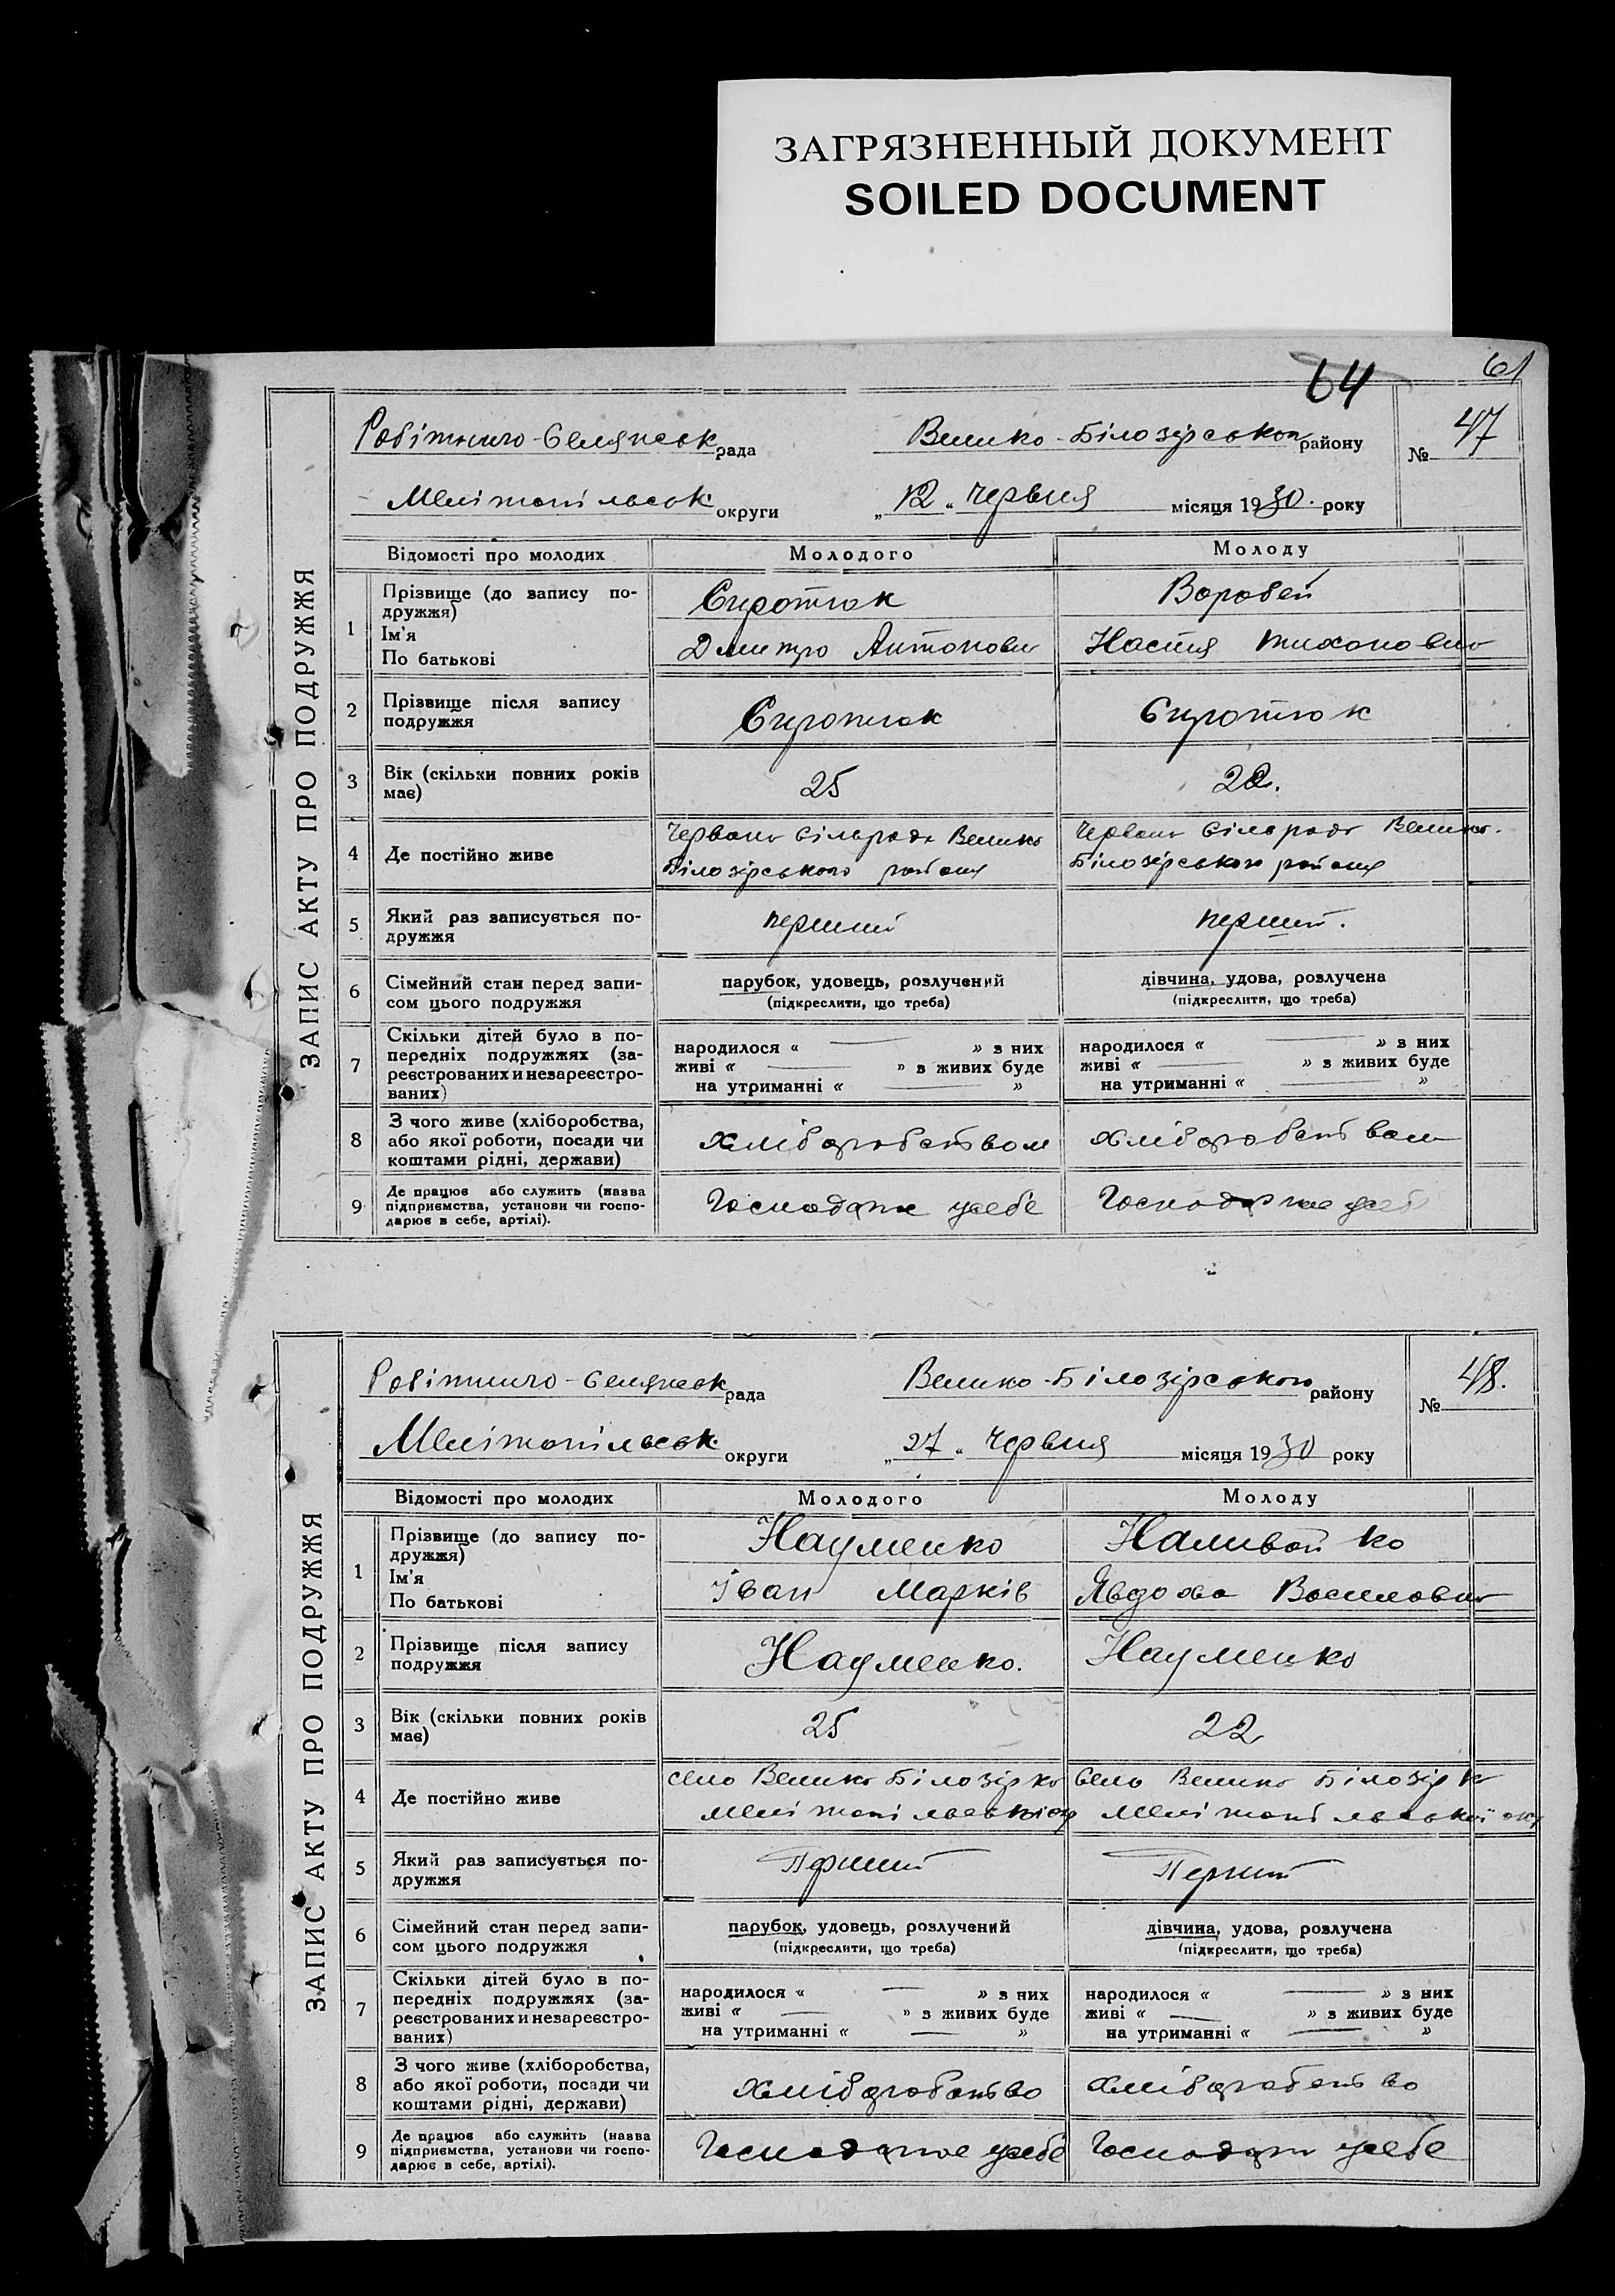 ЗАГРЯЗНЕННЫЙ ДОКУМЕНТ
SOILED DOCUMENT
64
61
ЗАПИС АКТУ ПРО ПОДРУЖЖЯ
Робітничо-Селянськ рада Велико-Білозірського району № 47
Мелітопільськ округи „12“ Червня місяця 1930. року
Відомості про молодих Молодого Молоду
1 Прізвище (до запису по-
дружжя) Сиротюк Воробей
Ім'я
По батькові Дмитро Антонович Настя Тихонович
2 Прізвище після запису
подружжя Сиротюк Сиротюк
3 Вік (скільки повних років
має) 25 22.
4 Де постійно живе
Червоно Сільрада Велико
Білозірського района
Червоно Сільрада Велико-
Білозірського района
5 Який раз записується по-
дружжя перший перший.
6 Сімейний стан перед запи-
сом цього подружжя
парубок, удовець, розлучений
(підкреслити, що треба)
дівчина, удова, розлучена
(підкреслити, що треба)
7 Скільки дітей було в по-
передніх подружжях (за-
реєстрованих и незареєстро-
ваних)
народилося « — » з них
живі « — » з живих буде
на утриманні « — »
народилося « — » з них
живі « — » з живих буде
на утриманні « — »
8 З чого живе (хліборобства,
або якої роботи, посади чи
коштами рідні, держави)
хліборобством хліборобством
9 Де працює або служить (назва
підприємства, установи чи госпо-
дарює в себе, артілі).
Господарює усебе Господарює усебе
ЗАПИС АКТУ ПРО ПОДРУЖЖЯ
Робітничо-Селянськ рада Велико-Білозірського району № 48.
Мелітопільськ округи „27“ Червня місяця 1930 року
Відомості про молодих Молодого Молоду
1 Прізвище (до запису по-
дружжя) Науменко Наливайко
Ім'я
По батькові Іван Марків Явдоха Василович
2 Прізвище після запису
подружжя Науменко. Науменко
3 Вік (скільки повних років
має) 25 22
4 Де постійно живе
село Велико Білозірко
Мелітопільської окр
село Велико Білозірк
Мелітопільської окр
5 Який раз записується по-
дружжя Перший Перший
6 Сімейний стан перед запи-
сом цього подружжя
парубок, удовець, розлучений
(підкреслити, що треба)
дівчина, удова, розлучена
(підкреслити, що треба)
7 Скільки дітей було в по-
передніх подружжях (за-
реєстрованих и незареєстро-
ваних)
народилося « — » з них
живі « — » з живих буде
на утриманні « — »
народилося « — » з них
живі « — » з живих буде
на утриманні « — »
8 З чого живе (хліборобства,
або якої роботи, посади чи
коштами рідні, держави)
хліборобство хліборобство
9 Де працює або служить (назва
підприємства, установи чи госпо-
дарює в себе, артілі).
Господарює усебе Господарю усебе